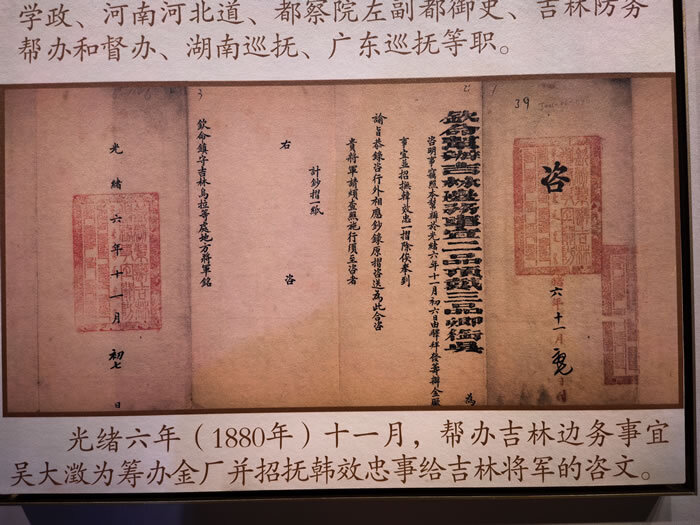 学政、河南河北道、都察院左副都御史、吉林防务
帮办和督办、湖南巡抚、广东巡抚等职。
39
咨
六年十一月
欽命幫辦吉林邊務事宜二品頂戴三品卿銜吳
為
咨明事竊照本幫辦於光緒六年十一月初六日由驛拜發籌辦金廠
事宜並招撫韓效忠一摺除俟奉到
諭旨恭錄咨行外相應鈔錄原摺咨送為此合咨
貴將軍請煩查照施行須至咨者
計鈔摺一紙
右咨
欽命鎮守吉林烏拉等處地方將軍銘
光緒六年十一月初七日
光绪六年（1880年）十一月，帮办吉林边务事宜
吴大澂为筹办金厂并招抚韩效忠事给吉林将军的咨文。